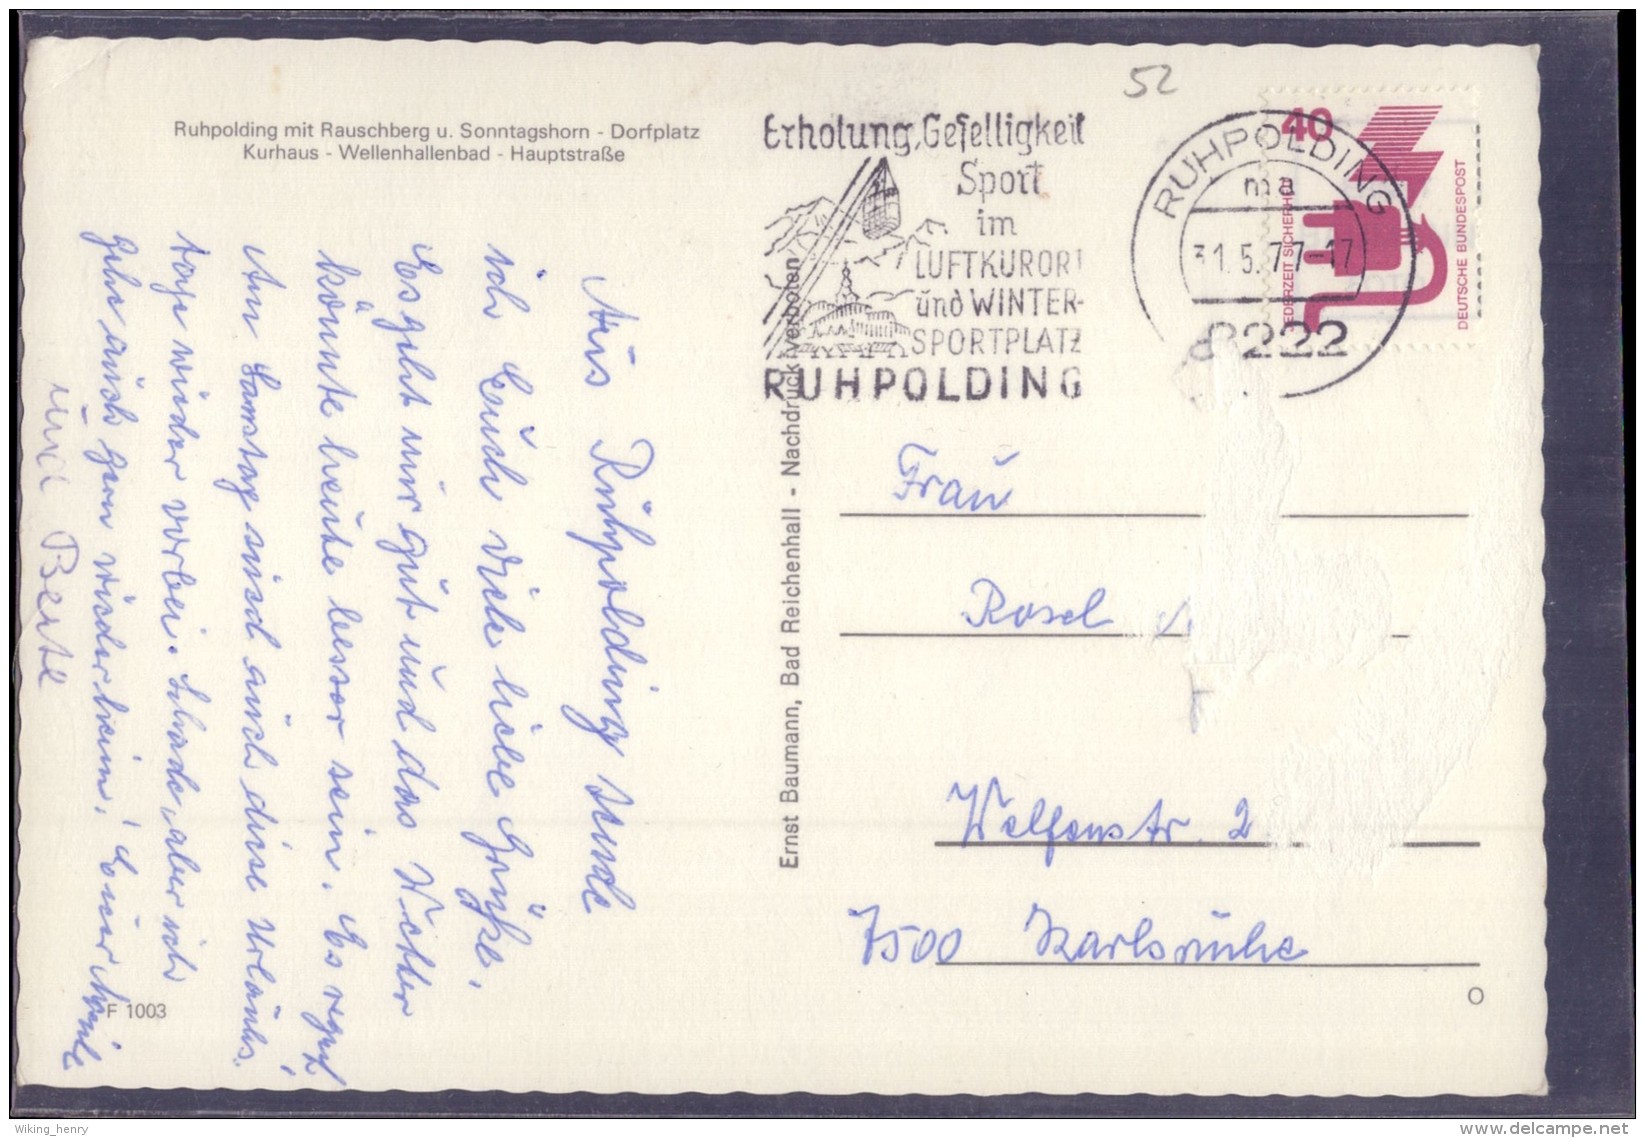 52
Ruhpolding mit Rauschberg u. Sonntagshorn - Dorfplatz
Kurhaus - Wellenhallenbad - Hauptstraße
Erholung, Geselligkeit
Sport
im
LUFTKURORT
und WINTER-
SPORTPLATZ
RUHPOLDING
RUHPOLDING
ma
31.5.77-17
8222
40
JEDERZEIT SICHERHEIT
DEUTSCHE BUNDESPOST
Aus Ruhpolding sende
ich Euch viele liebe Grüße.
Es geht mir gut und das Wetter
könnte heute besser sein. Es regnet
Am Samstag sind auch diese Urlaubs.
tage wieder vorbei. Schade, aber ich
gehe auch gern wieder heim. Euer
und Beate
Ernst Baumann, Bad Reichenhall - Nachdruck verboten
Frau
Rosel
Welfenstr. 2
7500 Karlsruhe
F 1003
O
Wiking_henry
www.delcampe.net